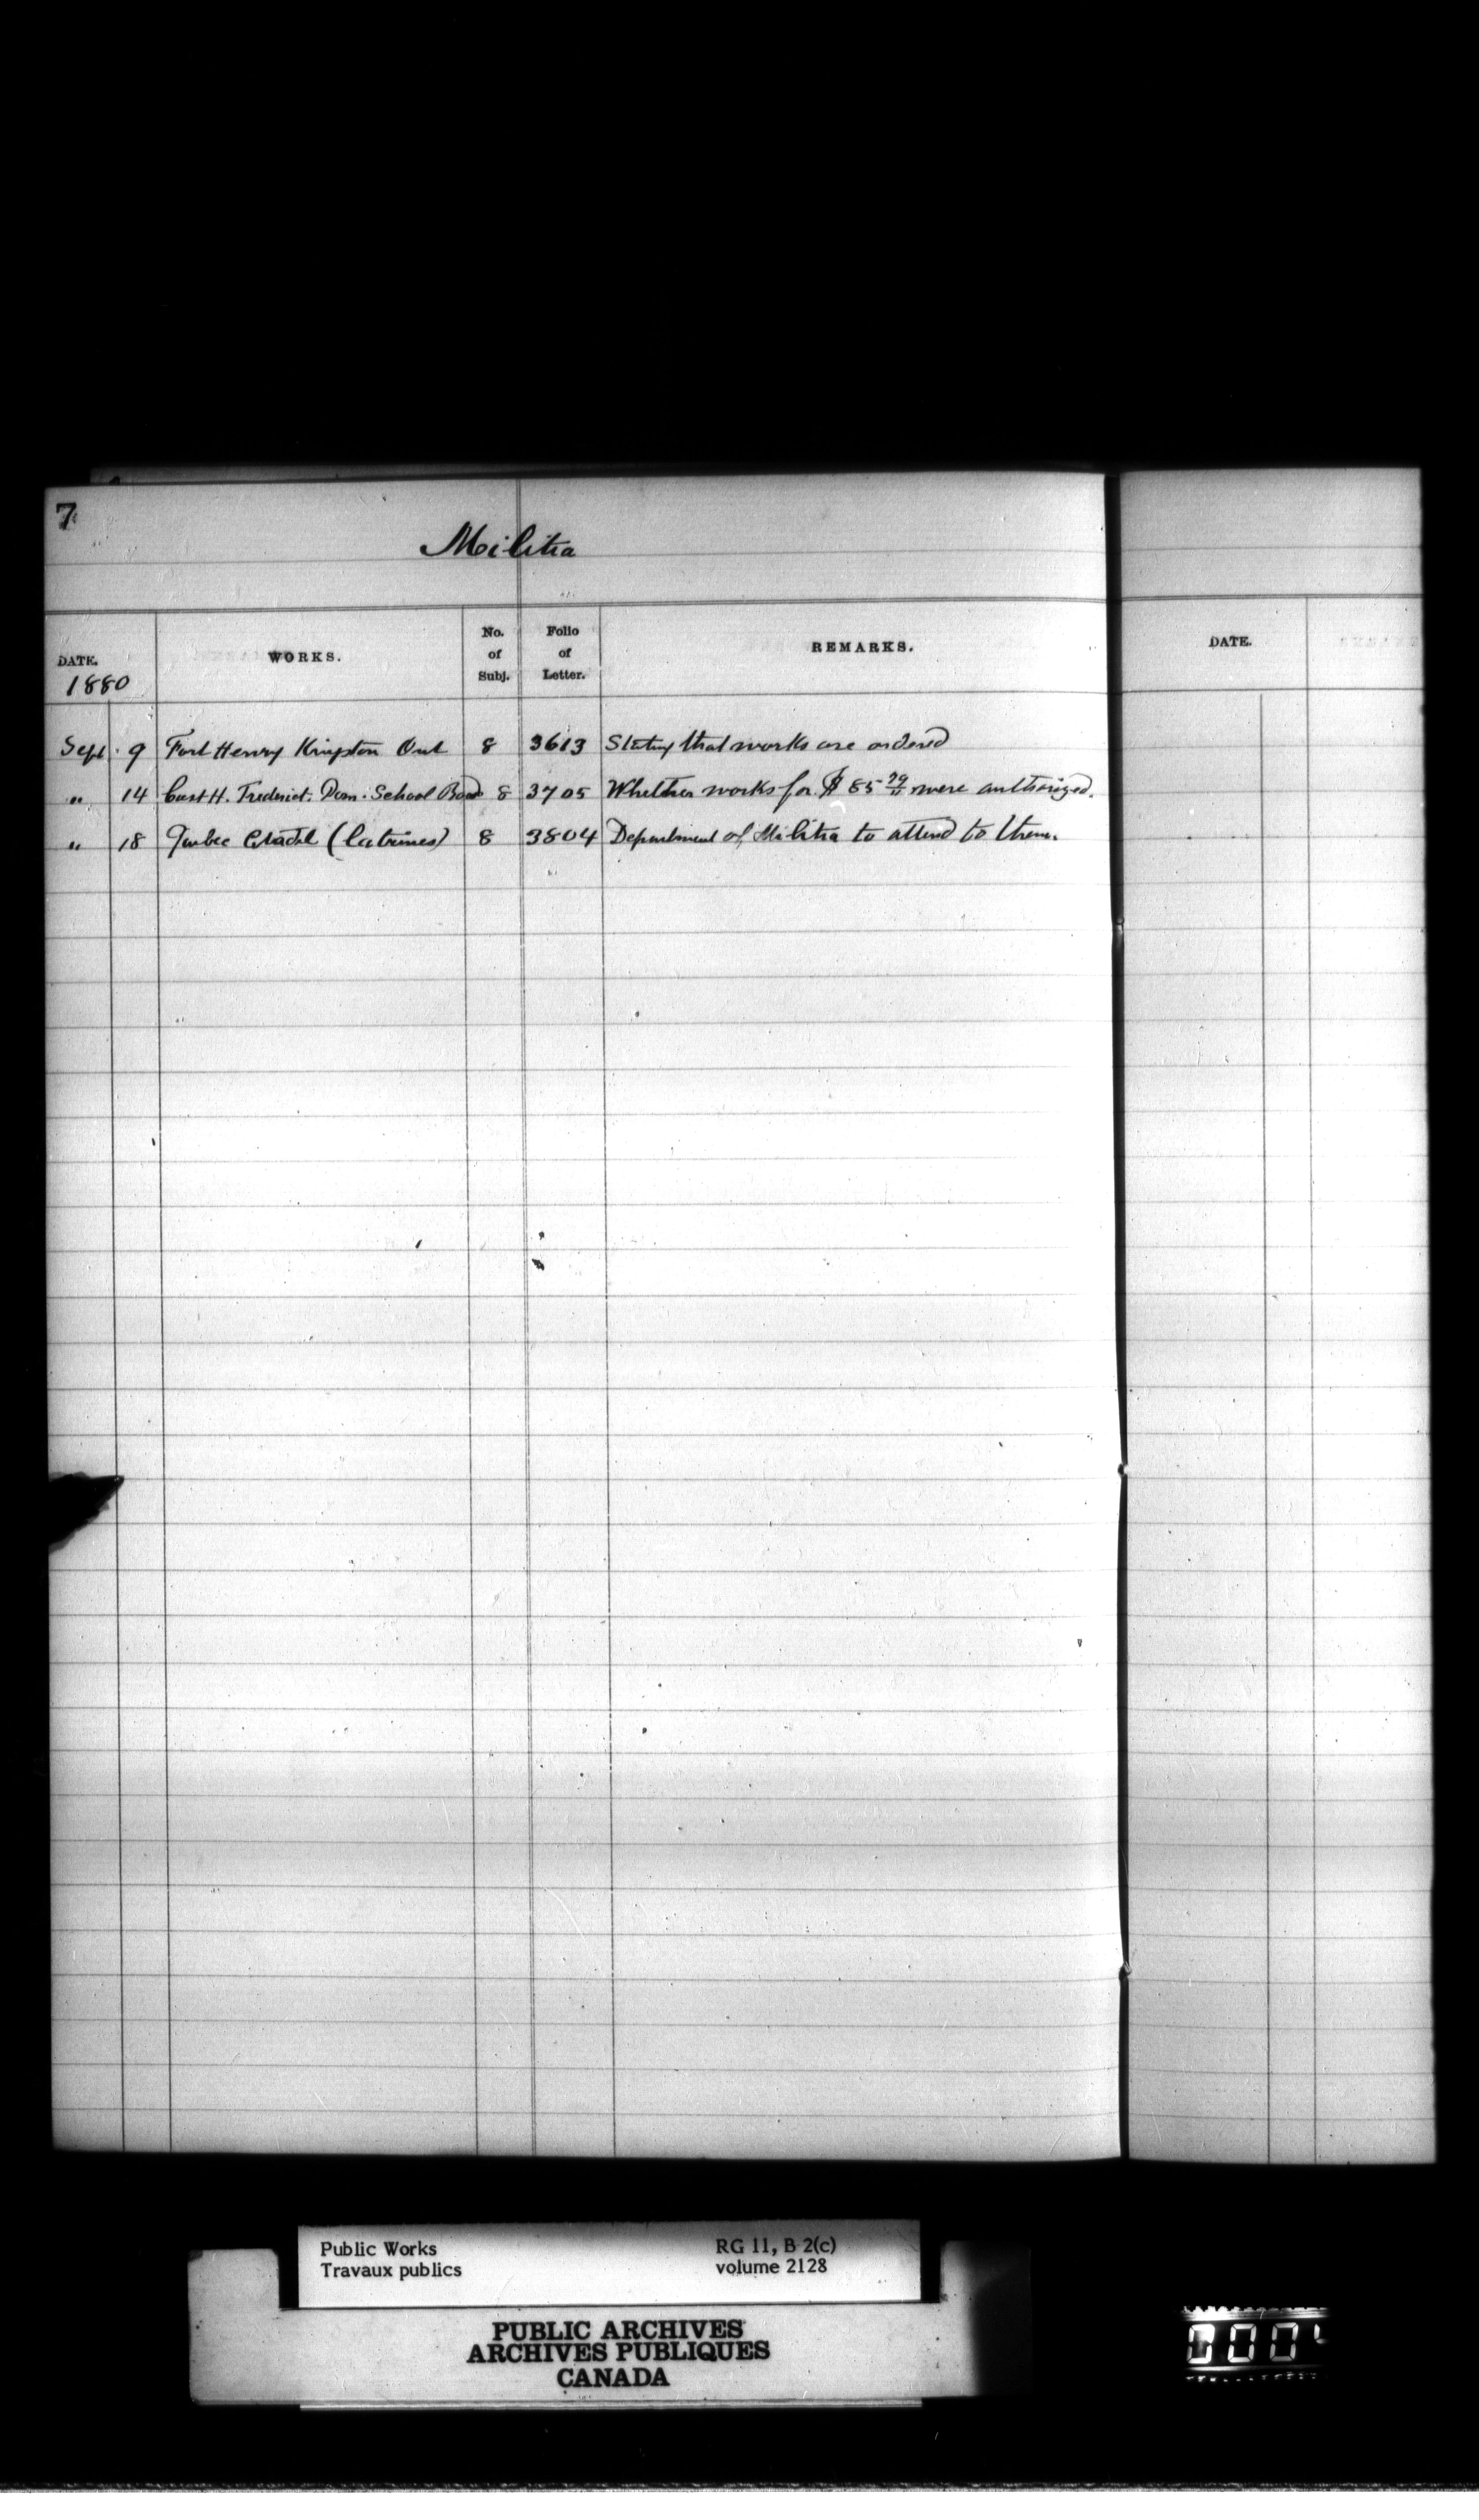 7
Militia
DATE. WORKS. No. of Subj. Folio of Letter. REMARKS. DATE.
1880
Sept. 9 Fort Henry Kingston Ont 8 3613 Stating that works are ordered
" 14 Cust H. Frederict. Dom. School Board 8 3705 Whether works for $ 85 were authorized.
" 18 Quebec Citadel (latrines) 8 3804 Department of Militia to attend to them.
Public Works RG 11, B 2(c)
Travaux publics volume 2128
PUBLIC ARCHIVES
ARCHIVES PUBLIQUES
CANADA